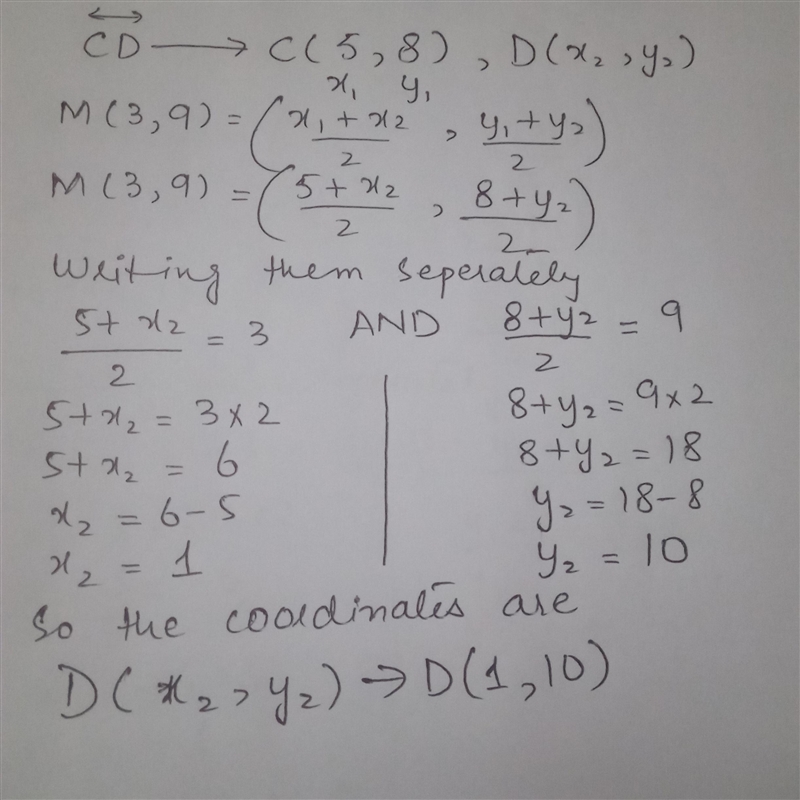 CD → C(5,8), D(x₂,y₂)
x₁ y₁
M(3,9) = (x₁+x₂/2, y₁+y₂/2)
M(3,9) = (5+x₂/2, 8+y₂/2)
Writing them seperately
5+x₂/2 = 3 AND 8+y₂/2 = 9
5+x₂ = 3×2 8+y₂ = 9×2
5+x₂ = 6 8+y₂ = 18
x₂ = 6-5 y₂ = 18-8
x₂ = 1 y₂ = 10
So the coordinates are
D(x₂,y₂) → D(1,10)